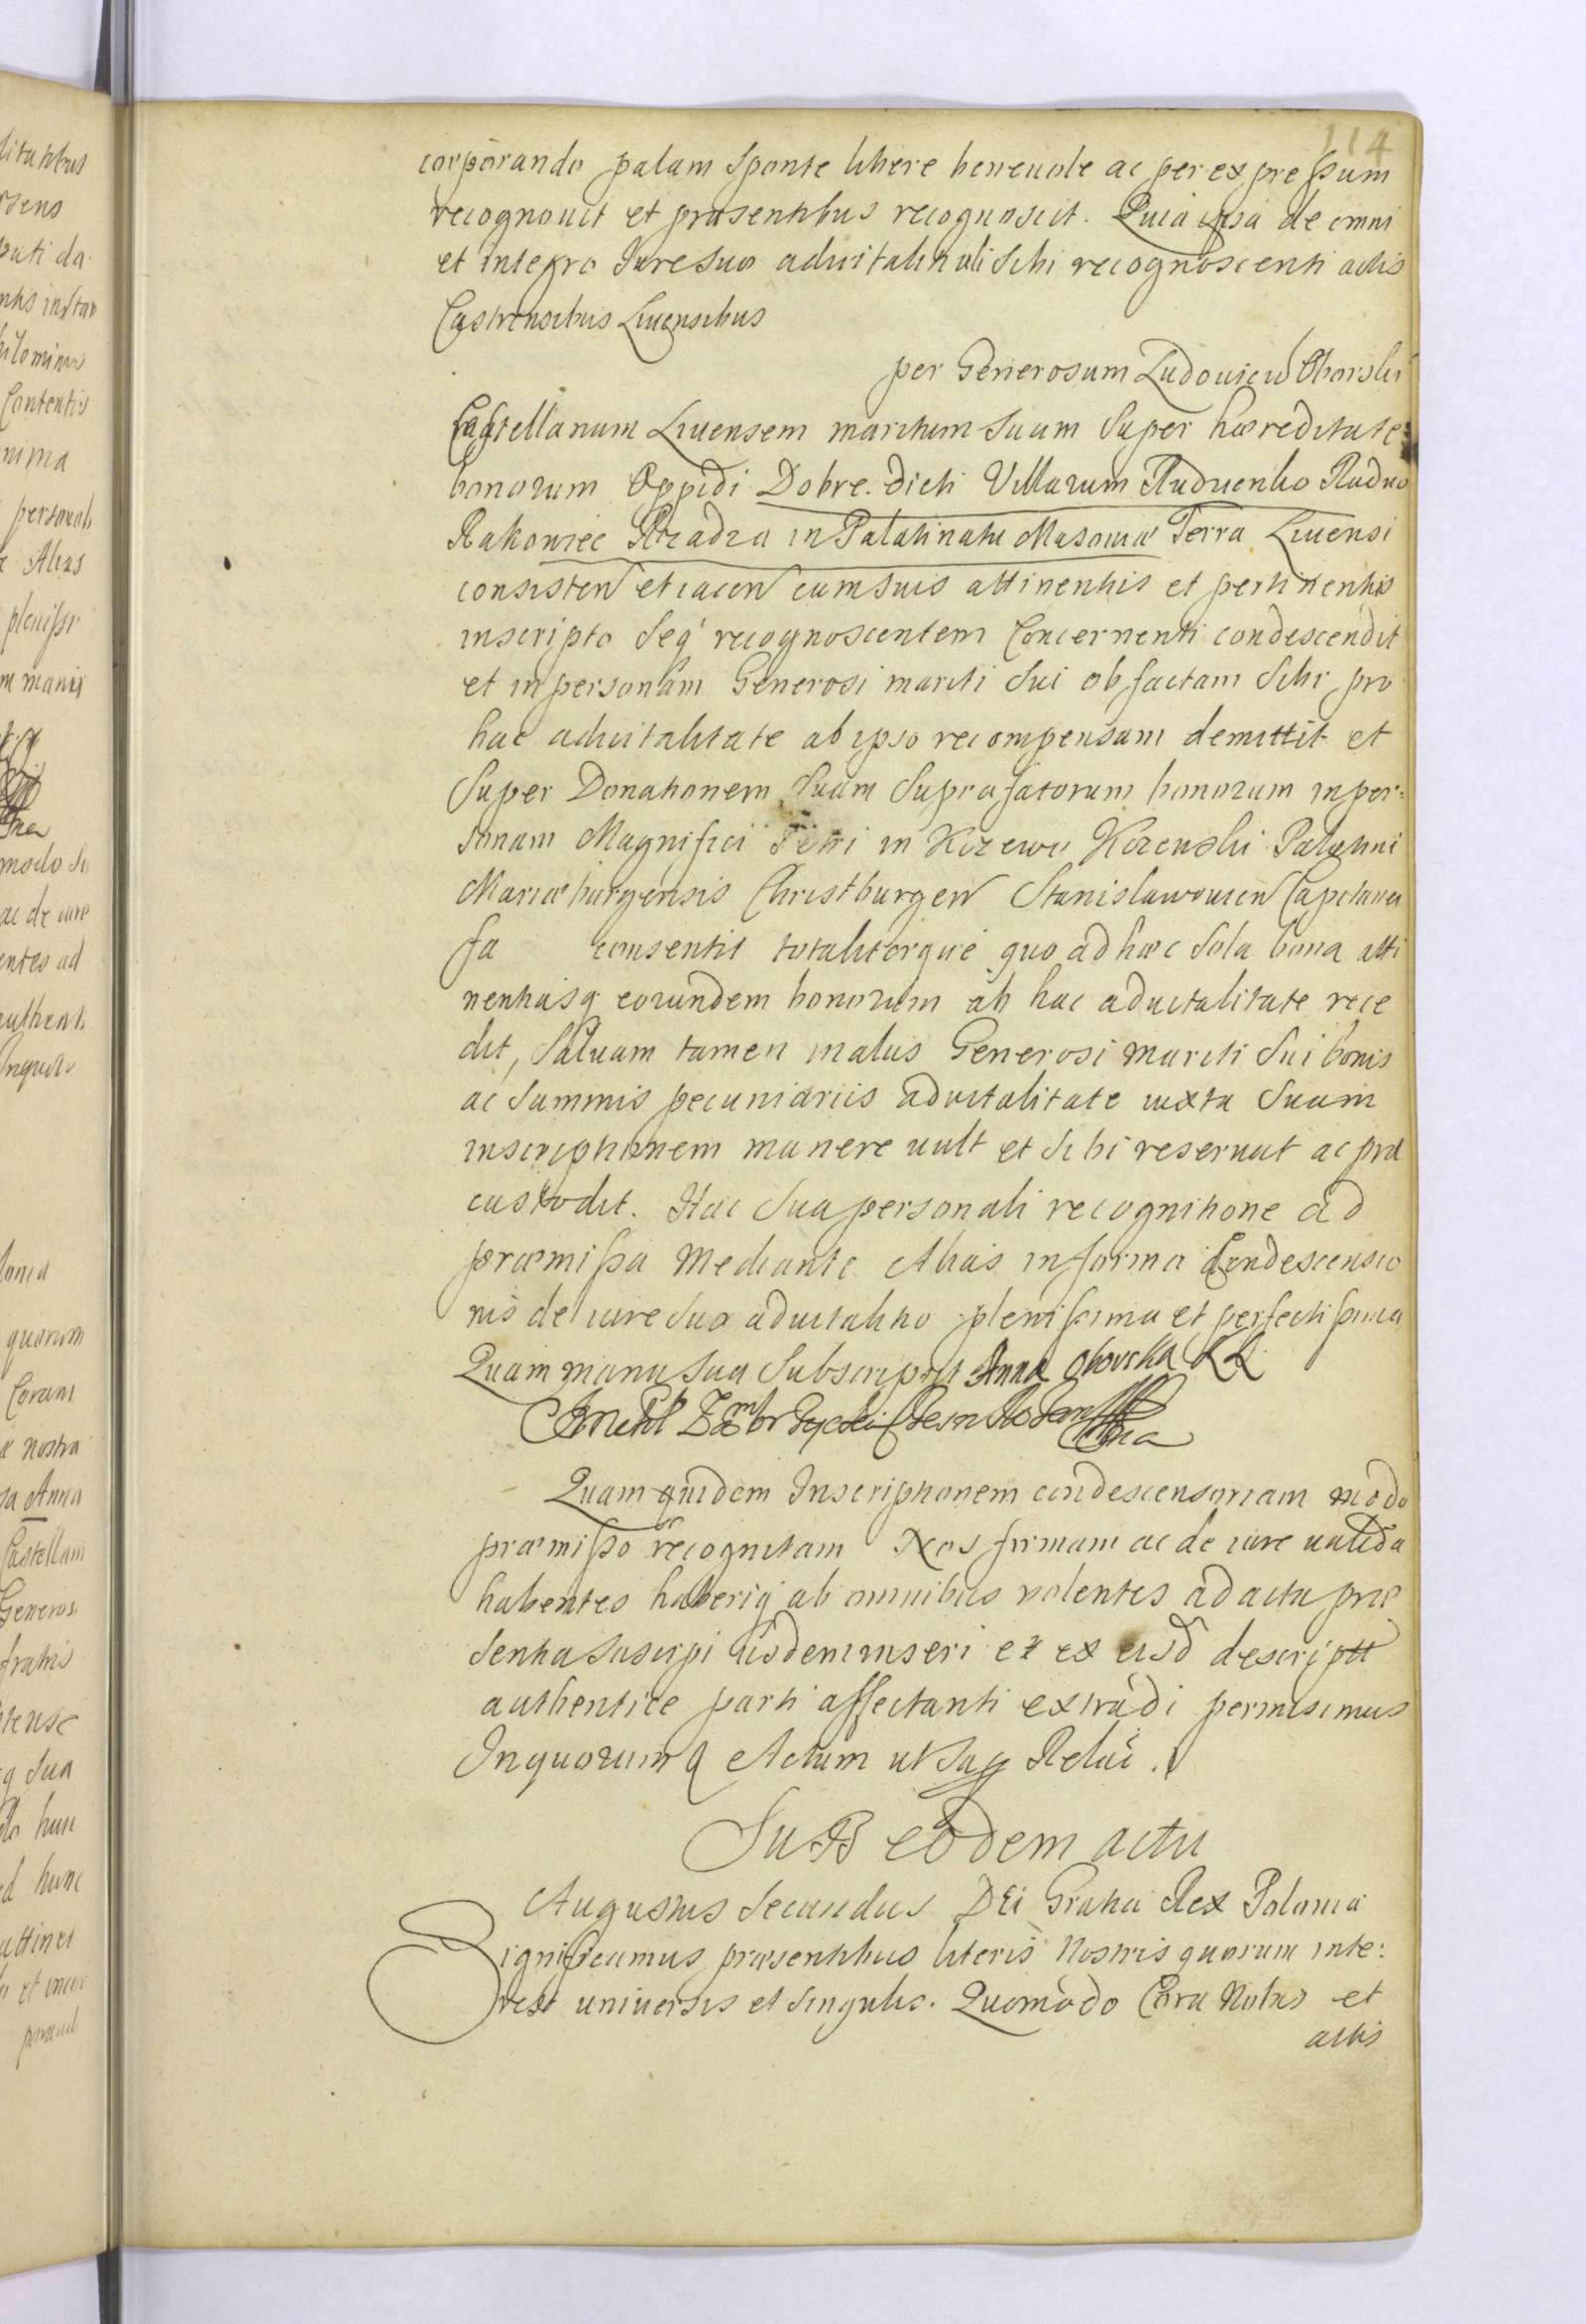 114
corporando palam sponte libere beneuole ac per expressum
recognouit et præsentibus recognoscit. Quia ipsa de omni
et integro Iure suo aduitalitiali sibi recognoscenti actis
Castrensibus Liuensibus
per Generosum Ludouicu Oborski
Castellanum Liuensem maritum suum super hæreditate
bonorum Oppidi Dobre dicti Villarum Rudzienko Rudno
Rakowiec Rządza in Palatinatu Masouiæ Terra Liuensi
consisten et iacen cum suis attinentiis et pertinentiis
inscripto seq recognoscentem Concernenti condescendit
et in personam Generosi mariti sui ob factam sibi pro
hac aduitalitate ab ipso recompensam demittit et
super Donationem suam suprafatorum bonorum in per:
sonam Magnifici Petri in Kczewo Kczewski Palatini
Mariæburgensis Christburgen Stanislawouien Capitanei
fa consentit totaliterque quo ad hæc sola bona atti
nentiasq eorundem bonorum ab hac aduitalitate rece
dit, saluam tamen in aliis Generosi mariti sui bonis
ac summis pecuniariis aduitalitate iuxta suam
inscriptionem manere uult et sibi reseruat ac præ
custodit. Hac sua personali recognitione ad
præmissa mediante Alias in forma Condescensio
nis de iure suo aduitalitio plenissima et perfectissima
Quam manu sua subscripsit Anna Oborska KL
Quam quidem Inscriptionem condescensoriam modo
præmisso recognitam Nos firmam ac de iure ualida
habentes haberiq ab omnibus volentes ad acta præ
sentia suscipi iisdem inseri et ex eisd descriptt
authentice parti affectanti extradi permisimus
In quorum q Actum ut supra Relat.
Sub eodem actu
Augustus Secundus Dei Gratia Rex Poloniæ
Significamus præsentibus literis Nostris quorum inte:
rest uniuersis et singulis. Quomodo Cora Nobis et
actis